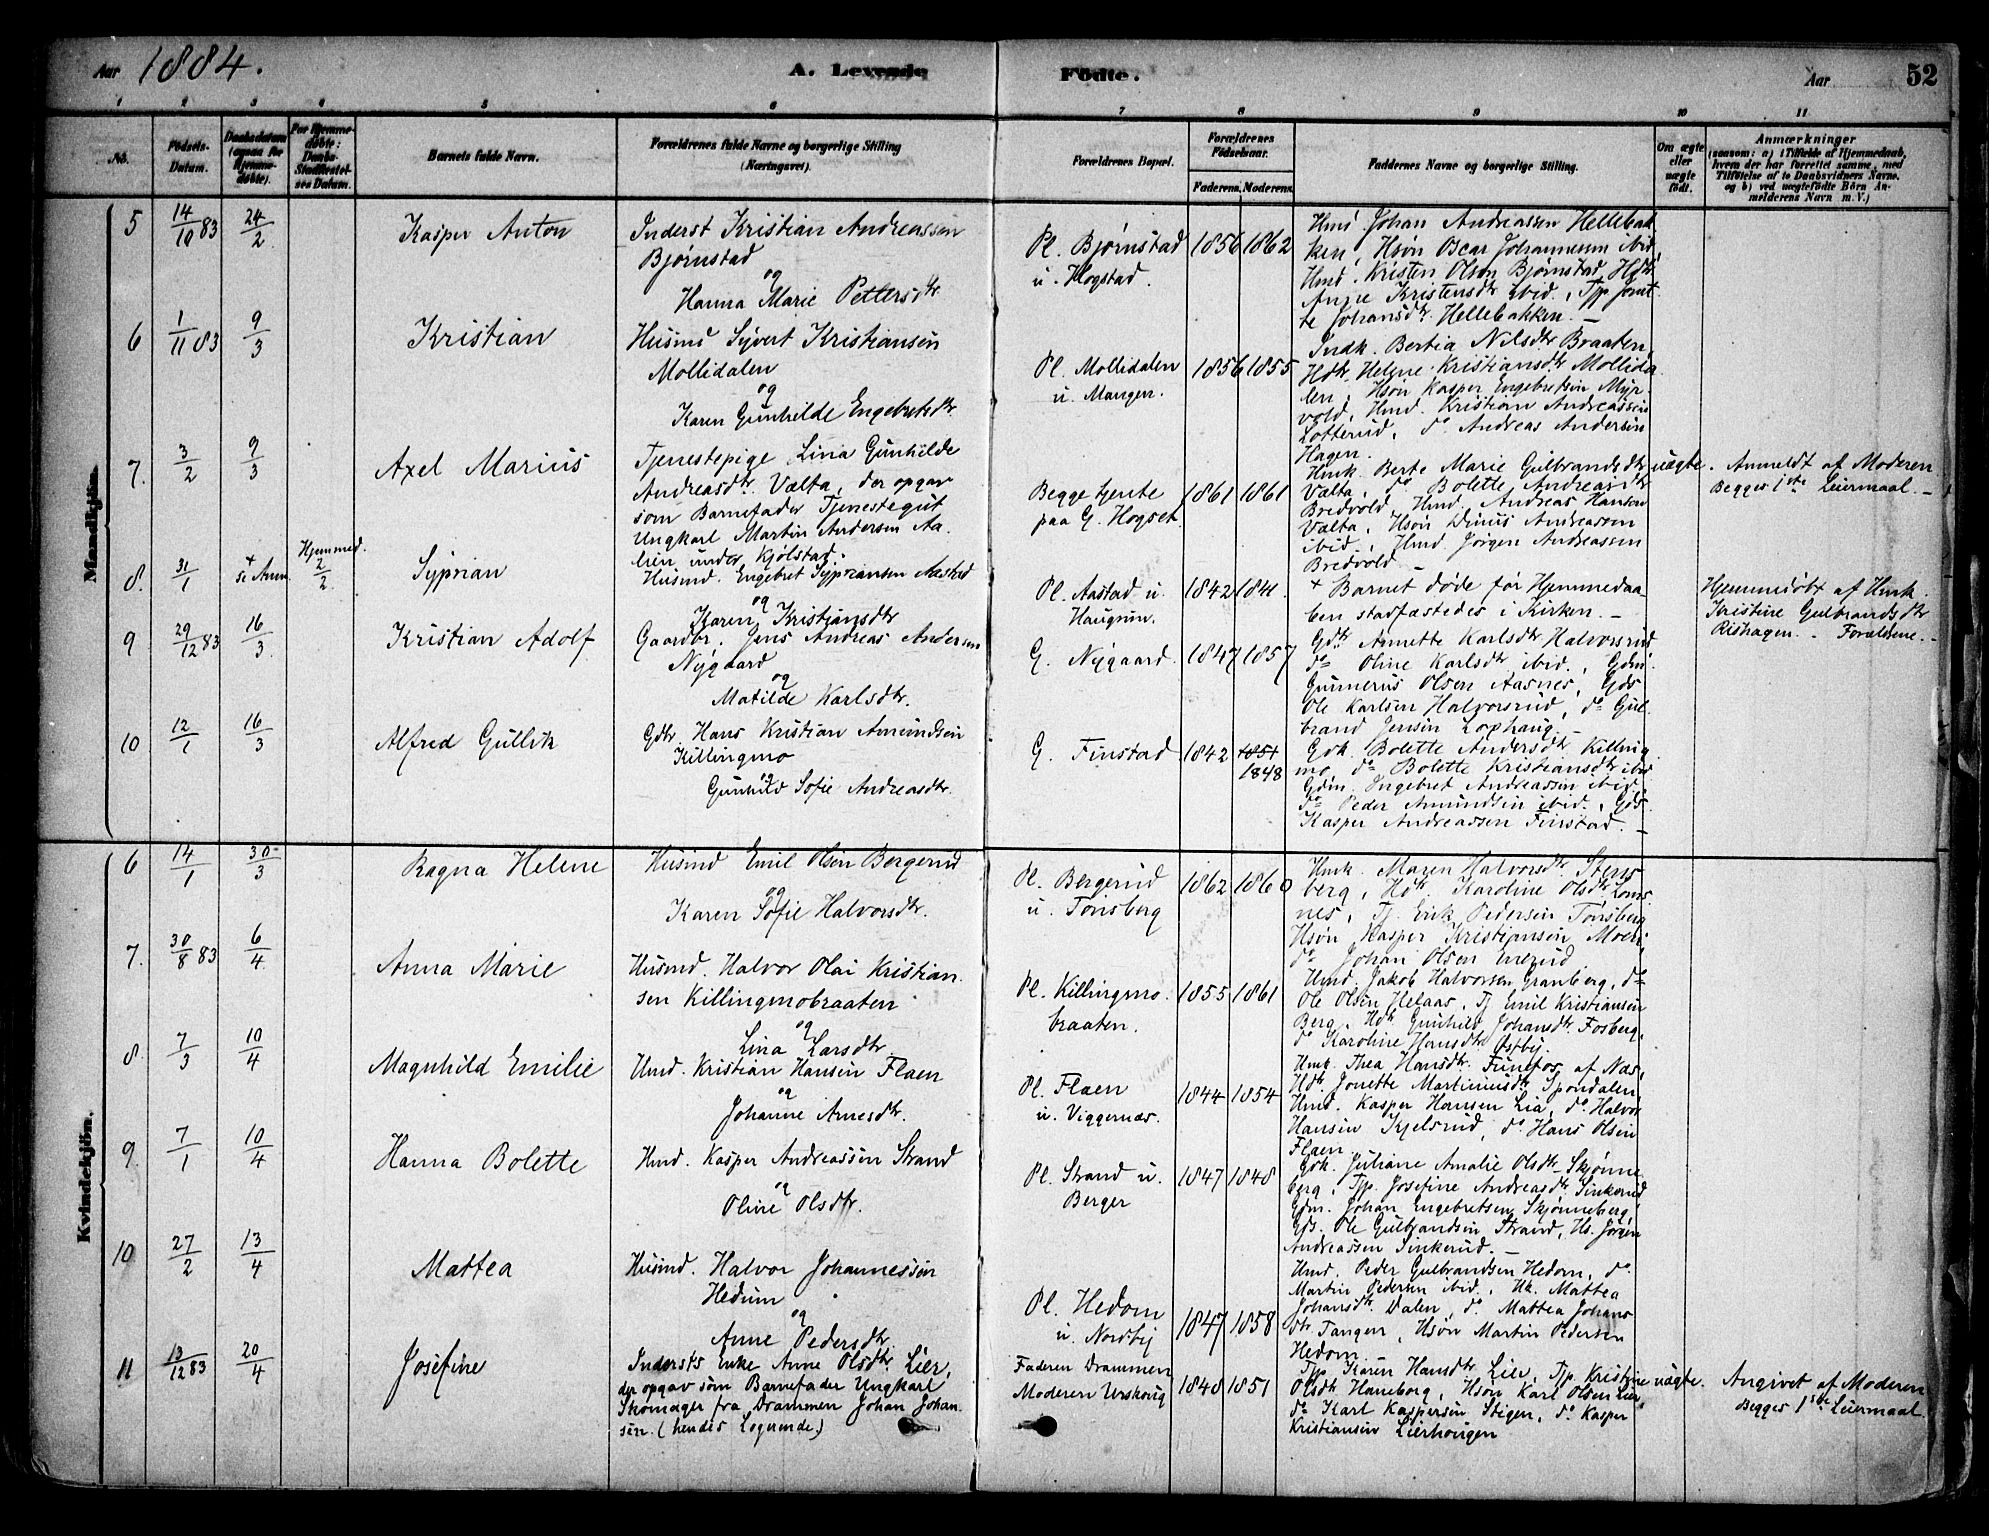 Aar 1884. A. Levende Födte. Aar 52
1 2 3 4 5 6 7 8 9 10 11
No. Födsels-Datum. Daabsdatum (ogsaa for Hjemmedøbte). For Hjemmedøbte: Daabs-Stadfæstelses Datum. Barnets fulde Navn. Forældrenes fulde Navne og borgerlige Stilling (Næringsvei). Forældrenes Bopæl. Forældrenes Födselsaar. Faderens. Moderens. Faddernes Navne og borgerlige Stilling. Om ægte eller uægte födt. Anmærkninger
(saasom: a) i Tilfælde af Hjemmedaab, hvem der har forrettet samme, med Tilföielse af to Daabsvidners Navne, og b) ved uægtefödte Börn Anmelderens Navn m. V.)
Mandkjön.
5 14/10 83 24/2 Kasper Anton
Inderst Kristian Andreassen
Bjørnstad
og
Hanna Marie Pettersdtr
Pl. Bjørnstad
u. Hogstad.
1856 1862
Hmd Johan Andreassen Hellebak
ken, Hsøn Oscar Johannessen ibid
Hmd. Kristen Olsen Bjørnstad, Hdtr
Anne Kristensdtr ibid., Tjp
te Johansdtr. Hellebakken. –
6 1/11 83 9/3 Kristian
Husmd Syvert Kristiansen
Mollidalen
og
Karen Gunhilde Engebretsdtr
Pl. Mollidalen
u. Mangen.
1856 1855
Indk. Bertia Nilsdtr Braaten,
Hdtr. Helene Kristiansdtr Mollida
len, Hsøn Kasper Engebretsen Myr
vold, Hmd. Kristian Andreassen
Lotterud, do Andreas Andersen
Hagen.
7. 3/2 9/3 Axel Marius
Tjenestepige Lina Gunhilde
Andreasdtr. Vælta, der opgav
som Barnefader Tjenestegut
Ungkarl Martin Andersen Aa
lien under Kjølstad.
Begge tjente
paa G. Hogset.
1861 1861
Hmk. Berte Marie Gulbrandsdtr
Vælta, do Bolette Andreasdtr
Bredvold, Hmd. Andreas Hansen
Vælta, Hsøn Andreassen
ibid., Hmd Jørgen Andreassen
Bredvold –
uægte. Anmeldt af Moderen
Begges 1ste Leiermaal. –
8. 31/1 + se Anm. Hjemmed. 2/2 Syprian
Husmd. Engebret Syprianssen Aastad
og
Karen Kristiansdtr
Pl. Aastad u.
Haugrim.
1842 1841.
+ Barnet døde før Hjemmedaa
ben stadfæstedes i Kirken. –
Hjemmedøbt af Hmk.
Kristine Gulbrandsdtr
Rishagen. – Forældrene. –
9 29/12 83 16/3 Kristian Adolf
Gaardbr. Jens Andreas Andersen
Nygaard
og
Matilde Karlsdtr.
G. Nygaard. 1847 1857
Gdtr. Annette Karlsdtr Halvorsrud
do Oline Karlsdtr ibid., Gdm.
Gunnerus Olsen Aasnes, Gds
Ole Karlsen Halvorsrud, do Gul
brand Jensen Lophaug. –
10 12/1 16/3 Alfred Gullik
Gdbr. Hans Kristian Amundsen
Killingmo
og
Gunhild Sofie Andreasdtr.
G. Finstad 1842 1851
1848
Gdk. Bolette Andersdtr Killing
mo, do Bolette Kristiansdtr ibid
Gdm. Ingebret Andreassen ibid.,
do Peder Amundsen ibid., Gds.
Kasper Andreassen Finstad. –
Kvindekjön.
6 14/1 30/3 Ragna Helene
Husmd Emil Olsen Bergerud
og
Karen Sofie Halvorsdtr.
Pl. Bergerud
u. Tonsberg
1862 1860
Hmk. Maren Halvorsdtr. Stens
berg, Hdtr. Karoline Olsdtr
nes, Tj. Erik Pedersen Tonsberg
Hsøn Kasper Kristiansen Moeri
do Johan Olsen
7. 30/8 83 6/4 Anna Marie
Husmd. Halvor Olai Kristian
sen Killingmobraaten
og
Lina Larsdtr
Pl. Killingmo
braaten.
1855 1861
Hmd. Jakob Halvorsen Granberg, do
Ole Olsen Helaas, Tj Emil Kristiansen
Berg, Hdtr Gunhild Johansdtr. Fosberg,
do Karoline Hansdtr Østby.
8. 7/3 10/4 Magnhild Emilie
Hmd. Kristian Hansen Flaen
og
Johanne Arnesdtr.
Pl. Flaen
u. Viggernæs.
1844 1854
Hmk. Thea Hansdtr. Funefos af Næs,
Hdtr. Jonette Martinusdtr Spondalen,
Hmd. Kasper Hansen Lia, do Halvor
Hansen Kjelsrud, do Hans Olsen
Flaen
9. 7/1 10/4 Hanna Bolette
Hmd. Kasper Andreassen Strand
og
Oline Olsdtr.
Pl. Strand u.
Berger
1847 1848
Gdk. Juliane Amalie Olsdtr Skjønne
berg, Tjp. Josefine Andreasdtr Sinkerud
Gdm. Johan Engebretsen Skjønneberg
Gds. Ole Gulbrandsen Strand, Hs. Jørgen
Andreassen Sinkerud. –
10 27/2 13/4 Mattea
Husmd. Halvor Johannessen
Hedum
og
Anne Pedersdtr
Pl. Hedom
u. Nordby
1847 1858
Hmd. Peder Gulbrandsen Hedom, do
Martin Pedersen ibid., Hk. Mattea
Johansdtr. Dalen, do Mattea Johans
dtr. Tangen, Hsøn Martin Pedersen
Hedom
11 13/12 83 20/4 Josefine
Inderst's Enke Anne Olsdtr. Lier,
der opgav som Barnefader Ungkarl
Skomager fra Drammen Johan Johan
sen. (hendes Logerende.)
Faderen Drammen
Moderen Urskoug
1848 1851
Tjp. Karen Hansdtr. Lier, Tjp. Kristine
Olsdtr. Haneborg, Hsøn Karl Olsen Lier
do Karl Kaspersen Stigen, do Kasper
Kristiansen Lierhougen
uægte. Angivet af Moderen
Begges 1ste Leiermaal.